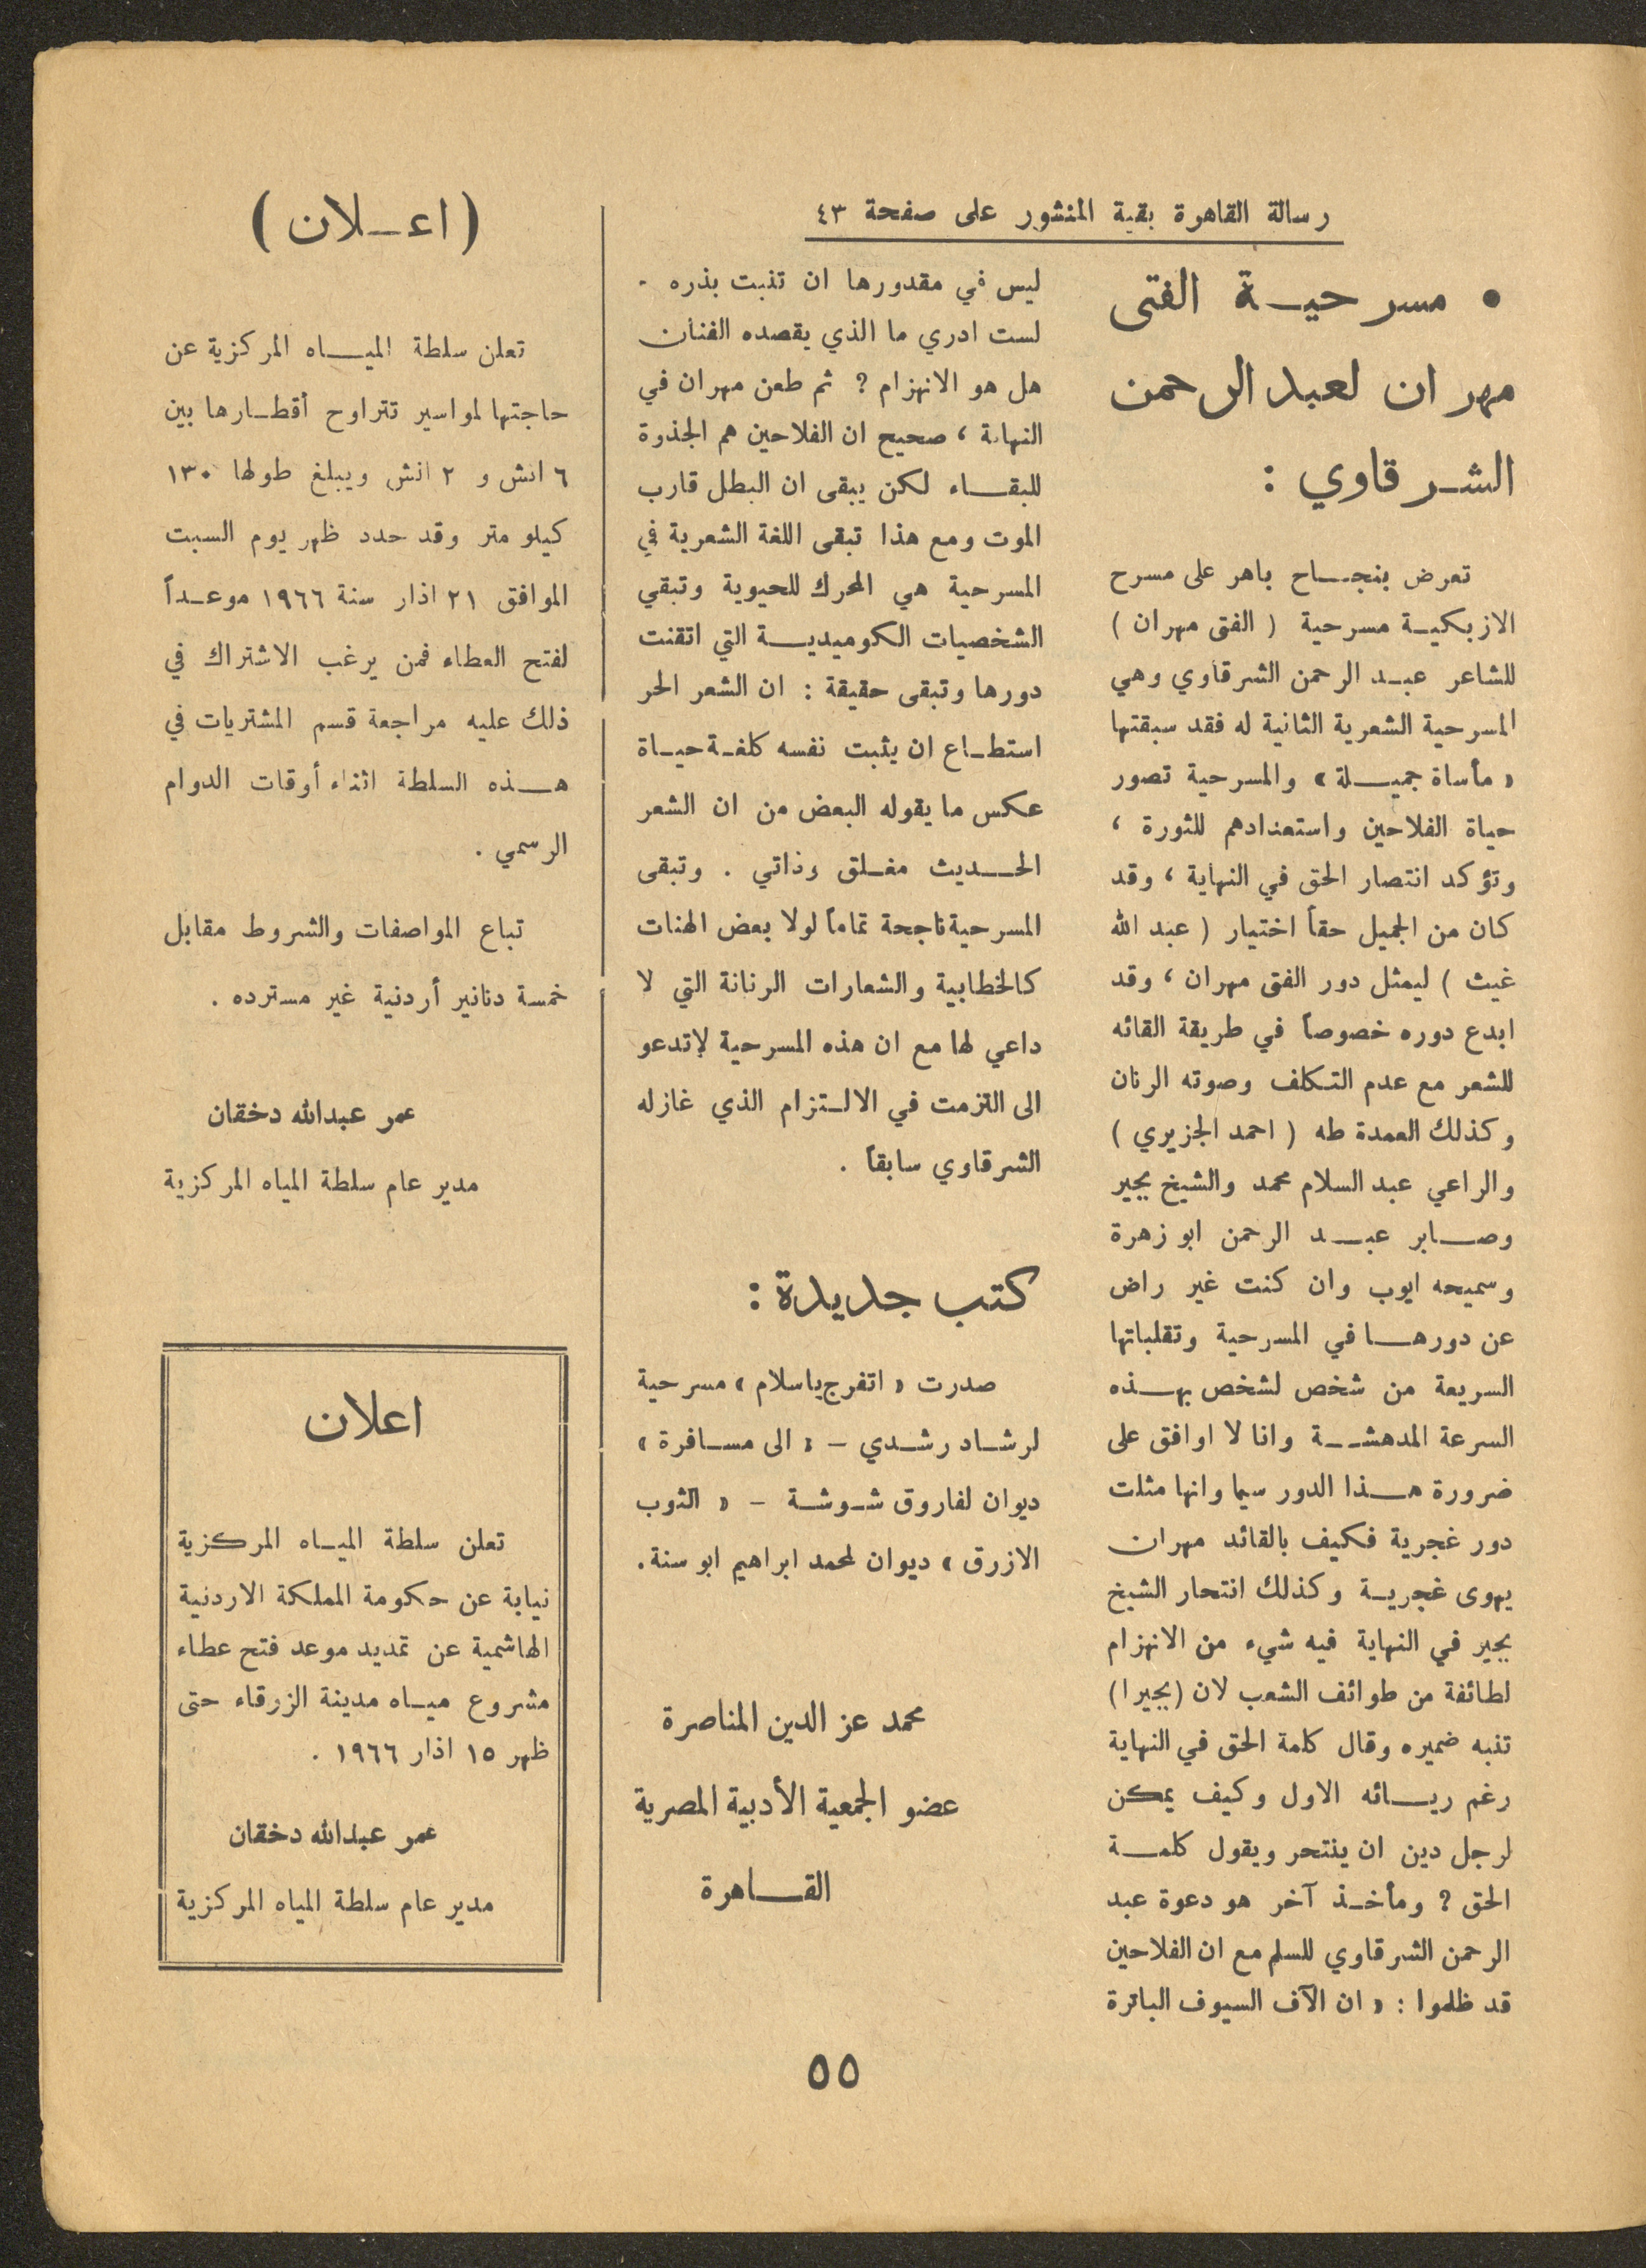 رسالة القاهرة بقية المنشور على صفحة ٤٣
• مسرحية الفتى
مهران لعبد الرحمن
الشرقاوي :
تعرض بنجاح باهر على مسرح
الازبكية مسرحية ( الفتى مهران )
للشاعر عبد الرحمن الشرقاوي وهي
المسرحية الشعرية الثانية له فقد سبقتها
« مأساة جميلة » والمسرحية تصور
حياة الفلاحين واستعدادهم للثورة ،
وتؤكد انتصار الحق في النهاية ، وقد
كان من الجميل حقاً اختيار ( عبد الله
غيث ) ليمثل دور الفتى مهران ، وقد
ابدع دوره خصوصاً في طريقة القائه
للشعر مع عدم التكلف وصوته الرنان
وكذلك العمدة طه ( احمد الجزيري )
والراعي عبد السلام محمد والشيخ بجير
وصابر عبد الرحمن ابو زهرة
وسميحه ايوب وان كنت غير راض
عن دورها في المسرحية وتقلباتها
السريعة من شخص لشخص بهذه
السرعة المدهشة وانا لا اوافق على
ضرورة هذا الدور سيما وانها مثلت
دور غجرية فكيف بالقائد مهران
يهوى غجرية وكذلك انتحار الشيخ
بجير في النهاية فيه شيء من الانهزام
لطائفة من طوائف الشعب لان (بجيرا)
تنبه ضميره وقال كلمة الحق في النهاية
رغم ريائه الاول وكيف يمكن
لرجل دين ان ينتحر ويقول كلمة
الحق ؟ ومأخذ آخر هو دعوة عبد
الرحمن الشرقاوي للسلم مع ان الفلاحين
قد ظلموا : « ان الآف السيوف الباترة
ليس في مقدورها ان تنبت بذره .
لست ادري ما الذي يقصده الفنان
هل هو الانهزام ؟ ثم طعن مهران في
النهاية ، صحيح ان الفلاحين هم الجذوة
للبقاء لكن يبقى ان البطل قارب
الموت ومع هذا تبقى اللغة الشعرية في
المسرحية هي المحرك للحيوية وتبقي
الشخصيات الكوميدية التي اتقنت
دورها وتبقى حقيقة : ان الشعر الحر
استطاع ان يثبت نفسه كلغة حياة
عكس ما يقوله البعض من ان الشعر
الحديث مغلق وذاتي . وتبقى
المسرحية ناجحة تماماً لولا بعض الهنات
كالخطابية والشعارات الرنانة التي لا
داعي لها مع ان هذه المسرحية لاتدعو
الى التزمت في الالتزام الذي غازله
الشرقاوي سابقاً .
كتب جديدة :
صدرت « اتفرج ياسلام » مسرحية
لرشاد رشدي – « الى مسافرة »
ديوان لفاروق شوشة – « الثوب
الازرق » ديوان لمحمد ابراهيم ابو سنة.
محمد عز الدين المناصرة
عضو الجمعية الأدبية المصرية
القاهرة
(اعلان)
تعلن سلطة المياه المركزية عن
حاجتها لمواسير تتراوح أقطارها بين
٦ انش و ٢ انش ويبلغ طولها ١٣٠
كيلو متر وقد حدد ظهر يوم السبت
الموافق ٢١ اذار سنة ١٩٦٦ موعداً
لفتح العطاء فمن يرغب الاشتراك في
ذلك عليه مراجعة قسم المشتريات في
هذه السلطة اثناء أوقات الدوام
الرسمي .
تباع المواصفات والشروط مقابل
خمسة دنانير أردنية غير مسترده .
عمر عبدالله دخقان
مدير عام سلطة المياه المركزية
اعلان
تعلن سلطة المياه المركزية
نيابة عن حكومة المملكة الاردنية
الهاشمية عن تمديد موعد فتح عطاء
مشروع مياه مدينة الزرقاء حتى
ظهر ١٥ اذار ١٩٦٦ .
عمر عبدالله دخقان
مدير عام سلطة المياه المركزية
٥٥